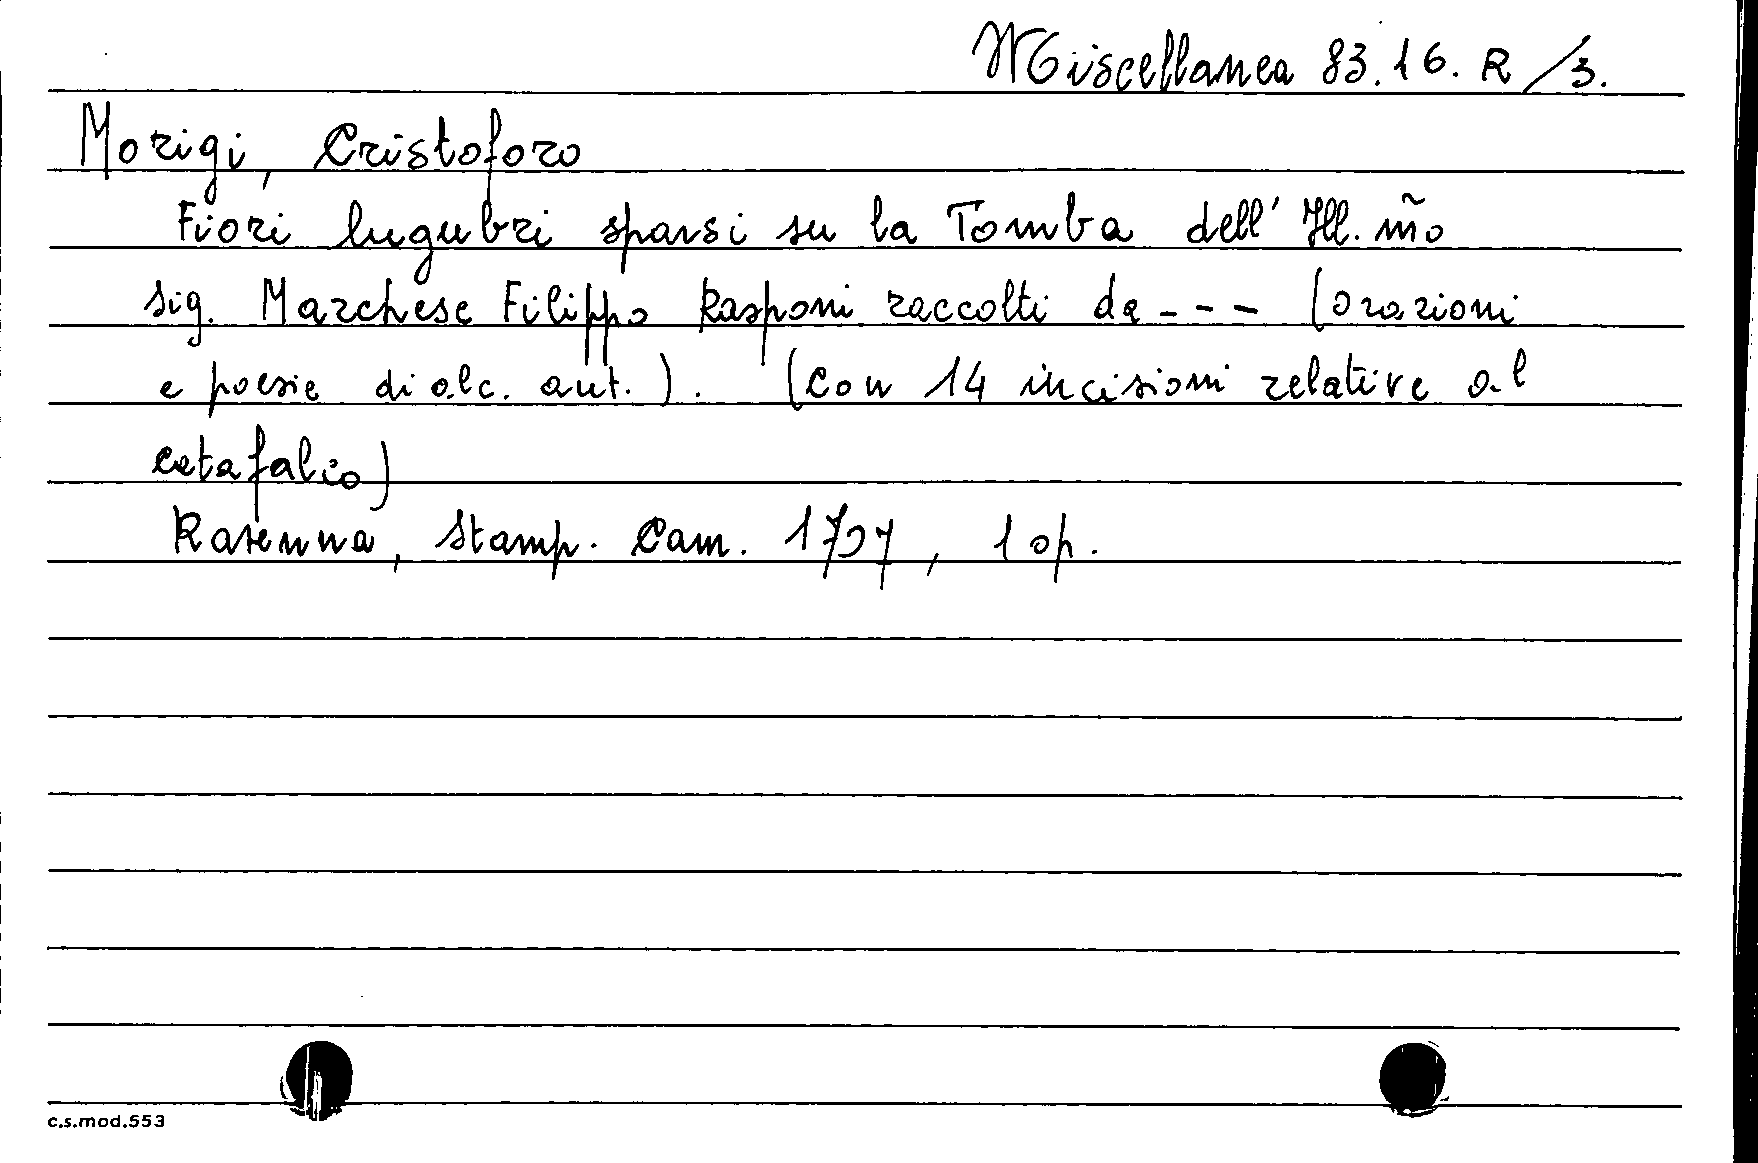 Miscellanea 83.16. R/3.
Morigi, Cristoforo
Fiori lugubri sparsi su la Tomba dell' Ill.m̃o
sig. Marchese Filippo Rasponi raccolti da --- (orazioni
e poesie di alc. aut.). (con 14 incisioni relative al
catafalco)
Ravenna, Stamp. Cam. , 1 op.
c.s.mod.553